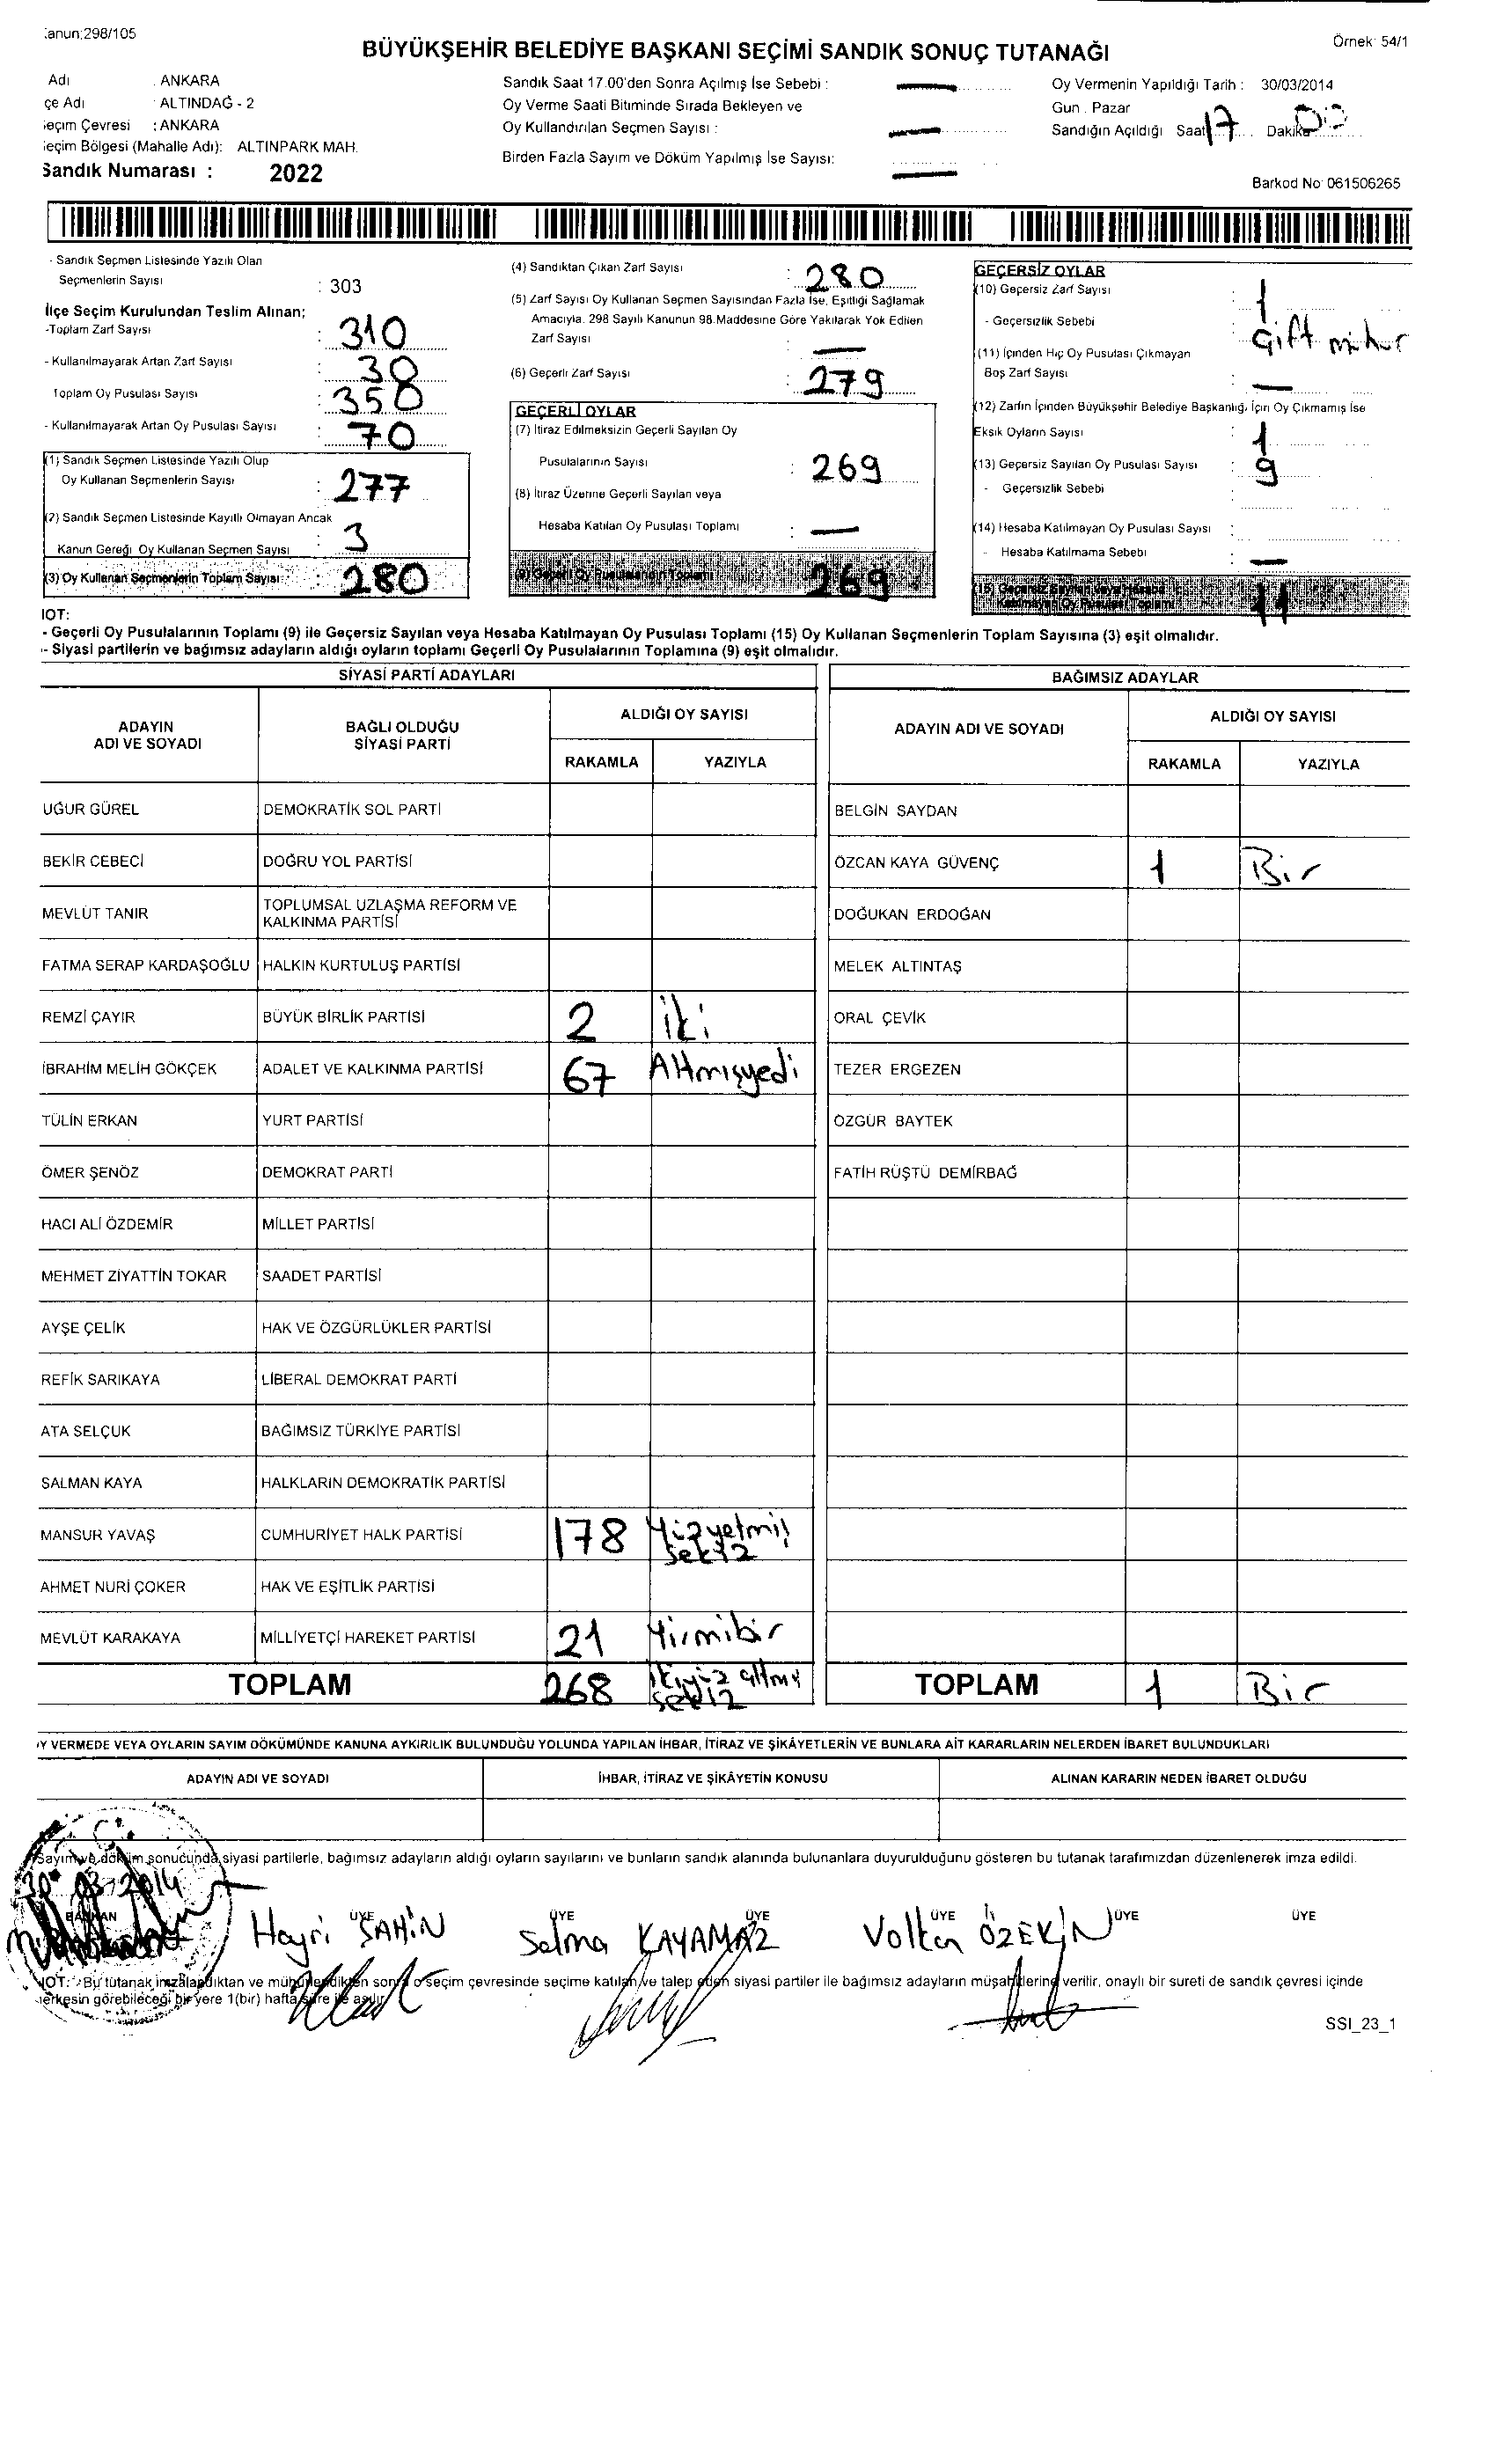 anun;298/105
BÜYÜKŞEHİR BELEDİYE BAŞKANI SEÇİMİ SANDIK SONUÇ TUTANAĞI
Örnek: 54/1
Adı : ANKARA
çe Adı : ALTINDAĞ - 2
eçim Çevresi : ANKARA
eçim Bölgesi (Mahalle Adı): ALTINPARK MAH.
Sandık Numarası : 2022
Sandık Saat 17.00'den Sonra Açılmış İse Sebebi :
Oy Verme Saati Bitiminde Sırada Bekleyen ve
Oy Kullandırılan Seçmen Sayısı :
Birden Fazla Sayım ve Döküm Yapılmış İse Sayısı:
Oy Vermenin Yapıldığı Tarih : 30/03/2014
Gün : Pazar
Sandığın Açıldığı Saat 17 Dakika 00
Barkod No: 061506265
- Sandık Seçmen Listesinde Yazılı Olan
Seçmenlerin Sayısı : 303
İlçe Seçim Kurulundan Teslim Alınan;
-Toplam Zarf Sayısı : 310
- Kullanılmayarak Artan Zarf Sayısı : 30
Toplam Oy Pusulası Sayısı : 350
- Kullanılmayarak Artan Oy Pusulası Sayısı : 70
(1) Sandık Seçmen Listesinde Yazılı Olup
Oy Kullanan Seçmenlerin Sayısı : 277
(2) Sandık Seçmen Listesinde Kayıtlı Olmayan Ancak
Kanun Gereği Oy Kullanan Seçmen Sayısı : 3
(3) Oy Kullanan Seçmenlerin Toplam Sayısı : 280
(4) Sandıktan Çıkan Zarf Sayısı : 280
(5) Zarf Sayısı Oy Kullanan Seçmen Sayısından Fazla İse, Eşitliği Sağlamak
Amacıyla, 298 Sayılı Kanunun 98.Maddesine Göre Yakılarak Yok Edilen
Zarf Sayısı : —
(6) Geçerli Zarf Sayısı : 279
GEÇERLİ OYLAR
(7) İtiraz Edilmeksizin Geçerli Sayılan Oy
Pusulalarının Sayısı : 269
(8) İtiraz Üzerine Geçerli Sayılan veya
Hesaba Katılan Oy Pusulası Toplamı : —
(9) Geçerli Oy Pusulalarının Toplamı 269
GEÇERSİZ OYLAR
(10) Geçersiz Zarf Sayısı : 1
- Geçersizlik Sebebi : Çift mühür
(11) İçinden Hiç Oy Pusulası Çıkmayan
Boş Zarf Sayısı : —
(12) Zarfın İçinden Büyükşehir Belediye Başkanlığı İçin Oy Çıkmamış İse
Eksik Oyların Sayısı : 1
(13) Geçersiz Sayılan Oy Pusulası Sayısı : 9
- Geçersizlik Sebebi
(14) Hesaba Katılmayan Oy Pusulası Sayısı :
- Hesaba Katılmama Sebebi : —
(15) Geçersiz Sayılan veya Hesaba
Katılmayan Oy Pusulası Toplamı 11
IOT:
- Geçerli Oy Pusulalarının Toplamı (9) ile Geçersiz Sayılan veya Hesaba Katılmayan Oy Pusulası Toplamı (15) Oy Kullanan Seçmenlerin Toplam Sayısına (3) eşit olmalıdır.
- Siyasi partilerin ve bağımsız adayların aldığı oyların toplamı Geçerli Oy Pusulalarının Toplamına (9) eşit olmalıdır.
SİYASİ PARTİ ADAYLARI
ADAYIN ADI VE SOYADI
BAĞLI OLDUĞU SİYASİ PARTİ
ALDIĞI OY SAYISI
RAKAMLA YAZIYLA
UĞUR GÜREL DEMOKRATİK SOL PARTİ
BEKİR CEBECİ DOĞRU YOL PARTİSİ
MEVLÜT TANIR TOPLUMSAL UZLAŞMA REFORM VE KALKINMA PARTİSİ
FATMA SERAP KARDAŞOĞLU HALKIN KURTULUŞ PARTİSİ
REMZİ ÇAYIR BÜYÜK BİRLİK PARTİSİ 2 iki
İBRAHİM MELİH GÖKÇEK ADALET VE KALKINMA PARTİSİ 67 Altmışyedi
TÜLİN ERKAN YURT PARTİSİ
ÖMER ŞENÖZ DEMOKRAT PARTİ
HACI ALİ ÖZDEMİR MİLLET PARTİSİ
MEHMET ZİYATTİN TOKAR SAADET PARTİSİ
AYŞE ÇELİK HAK VE ÖZGÜRLÜKLER PARTİSİ
REFİK SARIKAYA LİBERAL DEMOKRAT PARTİ
ATA SELÇUK BAĞIMSIZ TÜRKİYE PARTİSİ
SALMAN KAYA HALKLARIN DEMOKRATİK PARTİSİ
MANSUR YAVAŞ CUMHURİYET HALK PARTİSİ 178 Yüzyetmiş sekiz
AHMET NURİ ÇOKER HAK VE EŞİTLİK PARTİSİ
MEVLÜT KARAKAYA MİLLİYETÇİ HAREKET PARTİSİ 21 Yirmibir
TOPLAM 268 ikiyüz altmış sekiz
BAĞIMSIZ ADAYLAR
ADAYIN ADI VE SOYADI
ALDIĞI OY SAYISI
RAKAMLA YAZIYLA
BELGİN SAYDAN
ÖZCAN KAYA GÜVENÇ 1 Bir
DOĞUKAN ERDOĞAN
MELEK ALTINTAŞ
ORAL ÇEVİK
TEZER ERGEZEN
ÖZGÜR BAYTEK
FATİH RÜŞTÜ DEMİRBAĞ
TOPLAM 1 Bir
Y VERMEDE VEYA OYLARIN SAYIM DÖKÜMÜNDE KANUNA AYKIRILIK BULUNDUĞU YOLUNDA YAPILAN İHBAR, İTİRAZ VE ŞİKÂYETLERİN VE BUNLARA AİT KARARLARIN NELERDEN İBARET BULUNDUKLARI
ADAYIN ADI VE SOYADI İHBAR, İTİRAZ VE ŞİKÂYETİN KONUSU ALINAN KARARIN NEDEN İBARET OLDUĞU
Sayım ve döküm sonucunda siyasi partilerle, bağımsız adayların aldığı oyların sayılarını ve bunların sandık alanında bulunanlara duyurulduğunu gösteren bu tutanak tarafımızdan düzenlenerek imza edildi.
30 03 2014
BAŞKAN ÜYE ÜYE ÜYE ÜYE ÜYE ÜYE
Hayri ŞAHİN Selma KAYAMAZ Volkan ÖZEKİN
NOT: Bu tutanak imzalandıktan ve mühürlendikten sonra o seçim çevresinde seçime katılan ve talep eden siyasi partiler ile bağımsız adayların müşahitlerine verilir, onaylı bir sureti de sandık çevresi içinde
herkesin görebileceği bir yere 1(bir) hafta süre ile asılır.
SSI_23_1